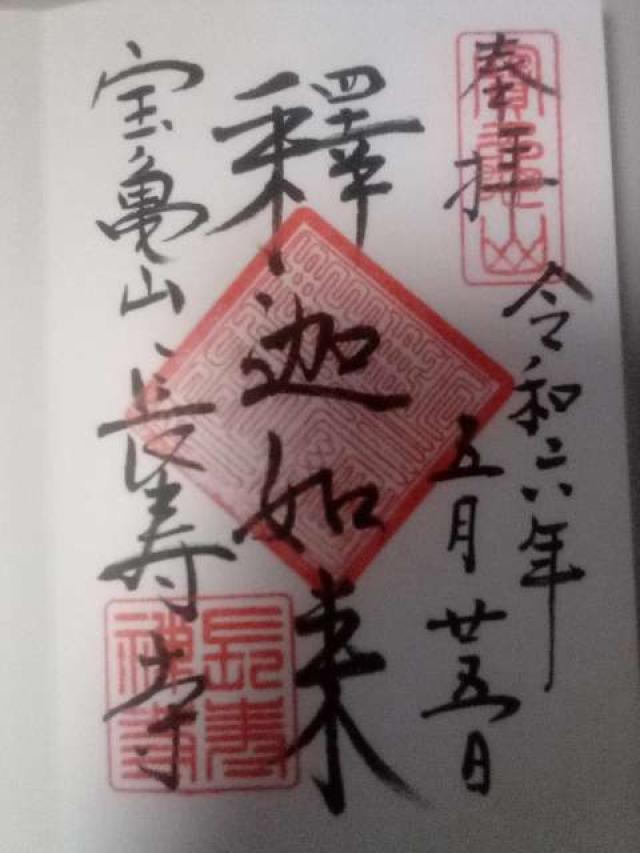 奉拝
令和六年
五月廿五日
釋迦如来
宝亀山長寿寺
寶亀山
長壽禅寺